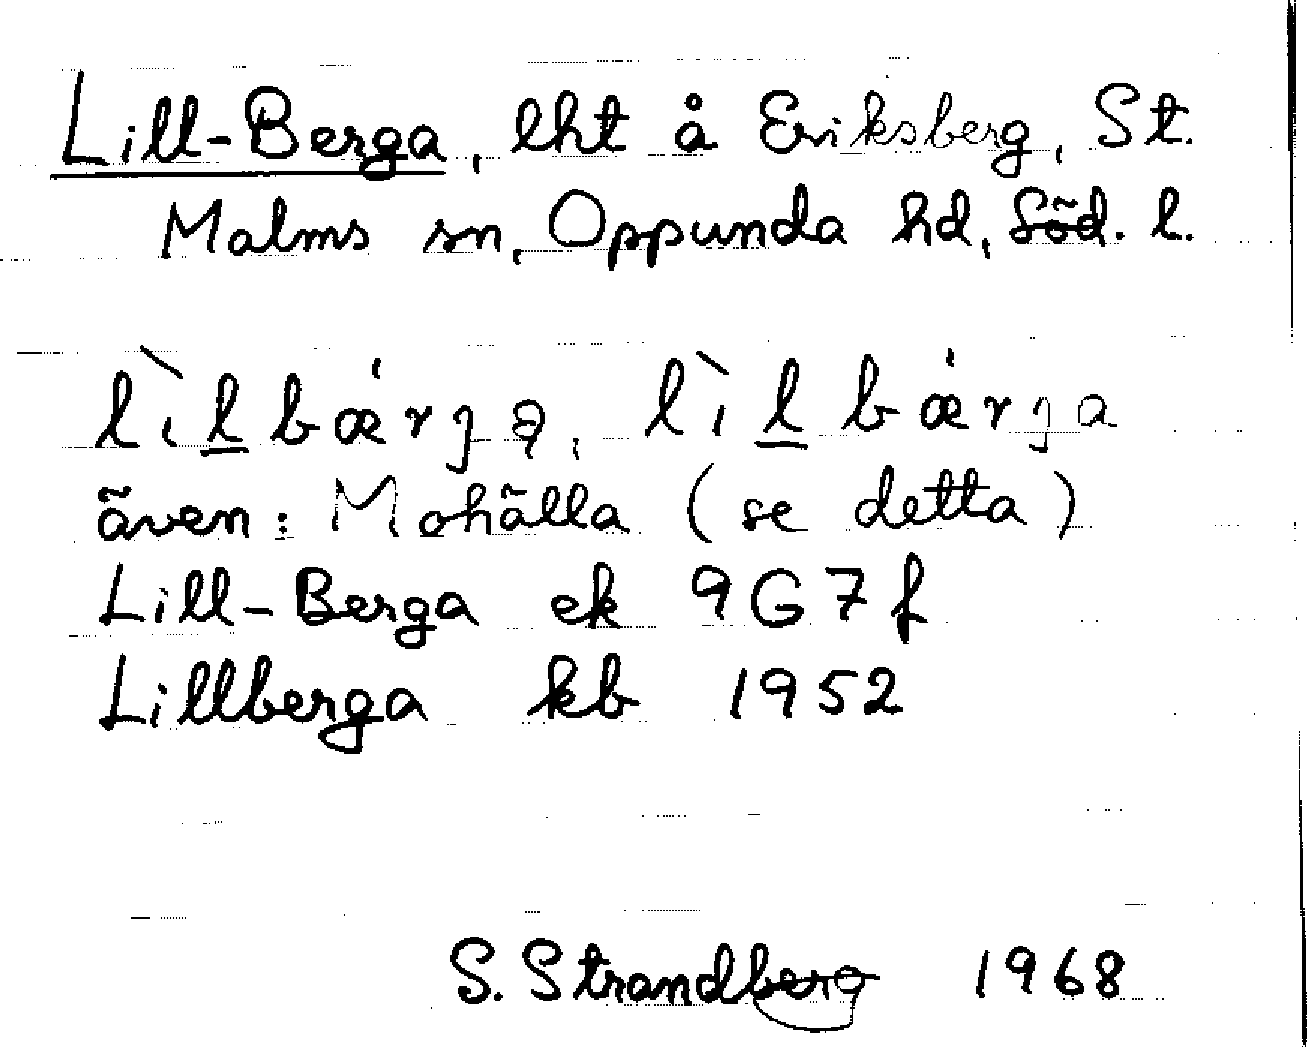 Lill-Berga, lht å Eriksberg, St.
Malms sn, Oppunda hd, Söd. l.
lìl̲bǽrʒə, lìl̲bǽrʒa
även: Mohälla (se detta)
Lill-Berga ek 9G7f
Lillberga kb 1952
S. Strandberg 1968